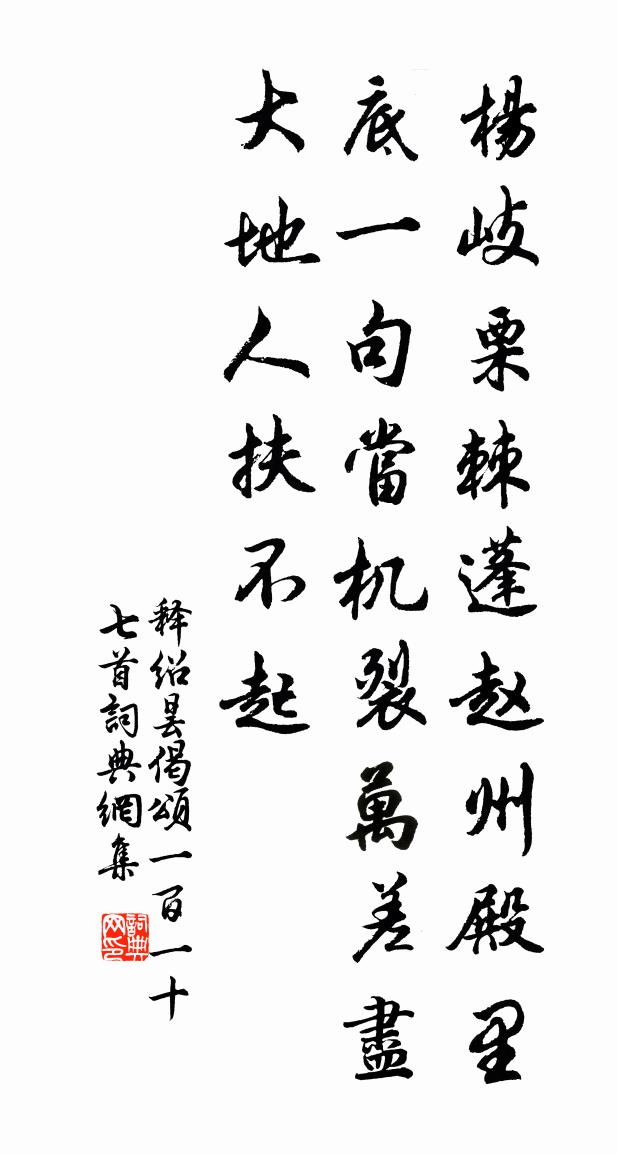 楊岐栗棘蓬赵州殿里
底一句當机裂萬差盡
大地人扶不起
释绍昙偈頌一百一十
七首詞典網集
詞典
网印